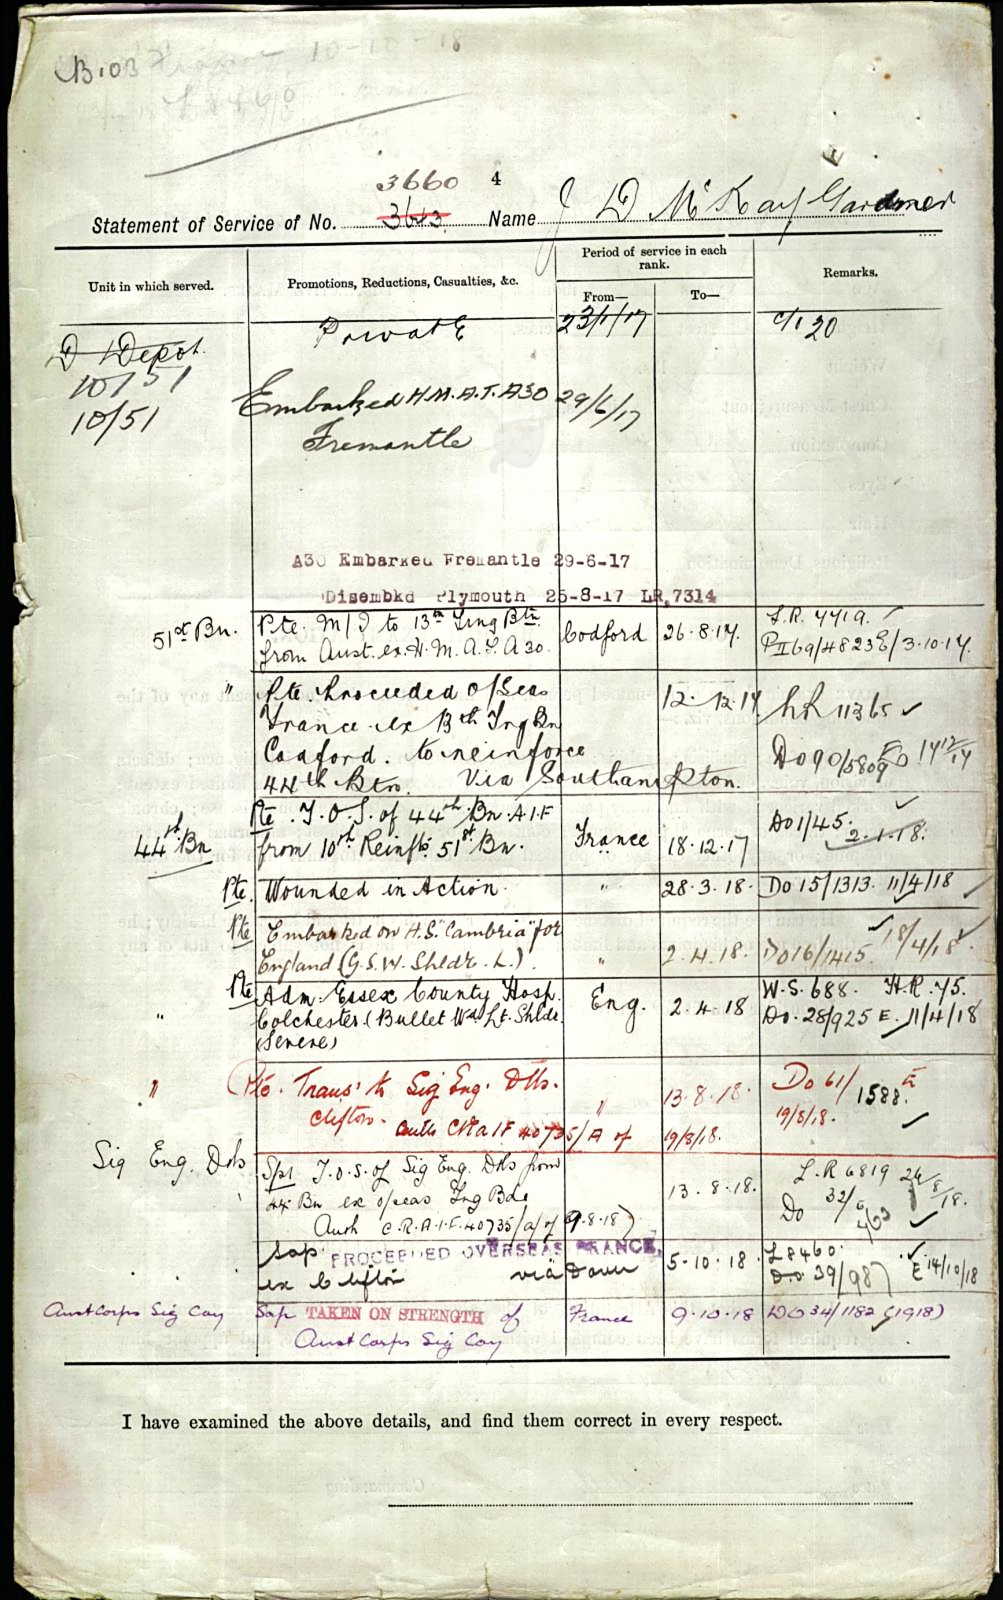 B103
10-10-18
3660 4
Statement of Service of No. 3613 Name J D McKay Gardner
Unit in which served.
Promotions, Reductions, Casualties, &c.
Period of service in each rank.
From—
To—
Remarks.
D Depot Private 23/1/17 c/1 20
10/51
10/51 Embarked H.M.A.T. A30 29/6/17
Fremantle
A30 Embarked Fremantle 29-6-17
Disembkd Plymouth 25-8-17 LR.7314
51st Bn. Pte. M/I to 13th Trng Btn. Codford 26.8.17. L.R. 7719.
from Aust. ex H.M.A.T. A30. PII 69/4823E/3.10.17.
" Pte. Proceeded O/Seas 12.12.17 LR 11365
France ex 13th Trng Bn
Codford. to reinforce Do 90/5809 E
44th Btn. Via Southampton.
44th Bn Pte. T.O.S. of 44th Bn. A.I.F France 18.12.17 Do 1/45.
from 10th Reinfts 51st Bn. 2.1.18.
Pte. Wounded in Action. " 28.3.18. Do 15/1313. 11/4/18
Pte Embarked on H.S. "Cambria" for
England (G.S.W. Shldr. L.) " 2.4.18. Do 16/1415. 18/4/18
" Pte Adm. Essex County Hosp. Eng. 2.4.18 W.S. 688. H.R. 75.
Colchester (Bullet Wd Lt. Shldr. Do. 28/925 E. 11/4/18
(Severe)
" Pte. Trans' to Sig Eng. Dtls. " 13.8.18. Do 61/1588. E
Clifton. 19/8/18.
Auth CRAIF 40735/A of 19/8/18.
Sig Eng. Dtls Spr T.O.S. of Sig Eng. Dtls from 13.8.18. L.R 6819 26/8/18.
44 Bn ex o/seas Trng Bde Do 32/
Auth C.R.A.I.F. 40735/a/of 9.8.18)
Sap PROCEEDED OVERSEAS FRANCE, 5-10-18. L8460.
ex Clifton via Dover Do 39/987 E 14/10/18
Aust Corps Sig Coy Sap TAKEN ON STRENGTH of France 9.10.18 DO 34/1182 (1918)
Aust Corps Sig Coy
I have examined the above details, and find them correct in every respect.